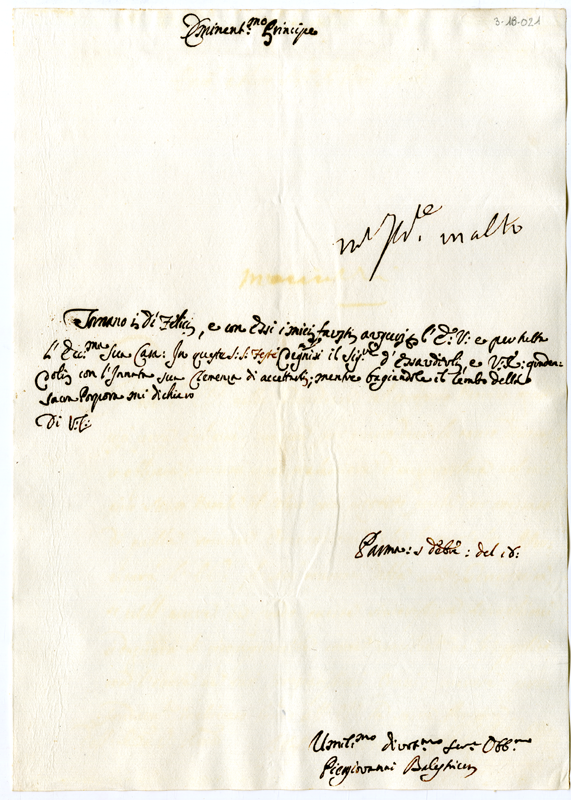 3-18-021
Eminent.mo Principe
molto
Tornano i Dì Felici, e con Essi i miei fausti auguri l'E.V: e per tutta
l'Ecc.ma Sua Casa: In queste S.S. Feste Degnisi il Sig.re d'Essaudirli, e V.E:
con l'Innata sua Clemenza di accettarli; mentre baggiandole il lembo della
Sacra Porpora mi dichiaro
Di V.E:
Parma: del 18:
Umiliss.mo divot.mo Ser.e Obb.mo
Piergiovanni